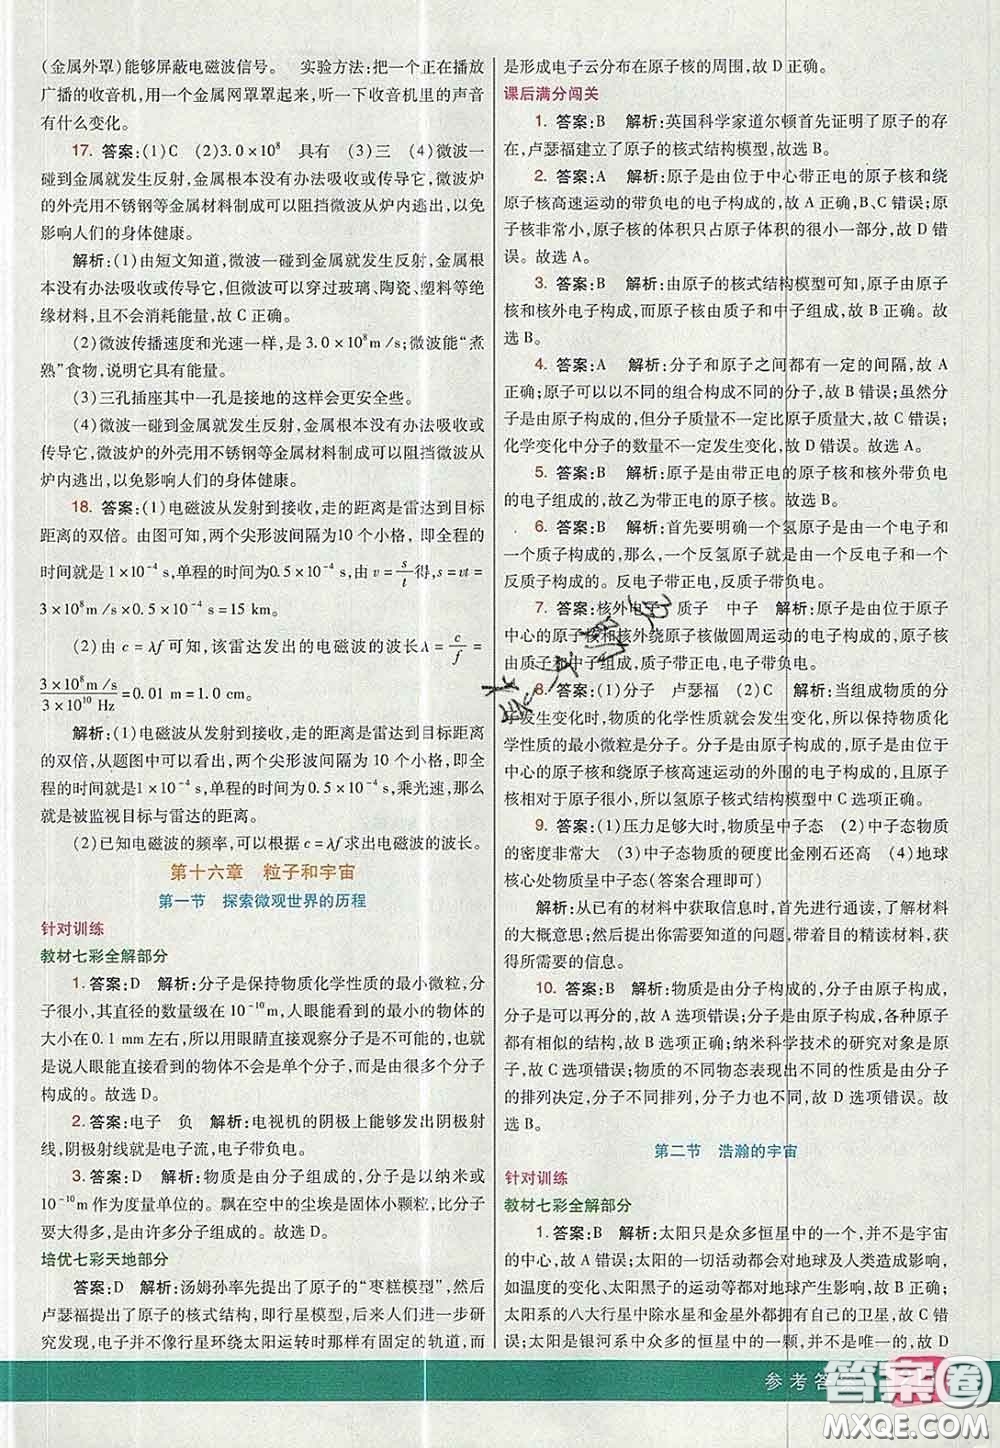 (金属外罩)能够屏蔽电磁波信号。 实验方法:把一个正在播放
广播的收音机,用一个金属网罩罩起来,听一下收音机里的声音
有什么变化。
17. 答案:(1)C (2)3.0×10⁸ 具有 (3)三 (4)微波一
碰到金属就发生反射,金属根本没有办法吸收或传导它,微波炉
的外壳用不锈钢等金属材料制成可以阻挡微波从炉内逃出,以免
影响人们的身体健康。
解析:(1)由短文知道,微波一碰到金属就发生反射,金属
根本没有办法吸收或传导它;微波可以穿过玻璃、陶瓷、塑料等绝
缘材料,且不会消耗能量,故 C 正确。
(2)微波传播速度和光速一样,是 3.0×10⁸ m/s;微波能“煮
熟”食物,说明它具有能量。
(3)三孔插座其中一孔是接地的这样会更安全些。
(4)微波一碰到金属就发生反射,金属根本没有办法吸收或
传导它,微波炉的外壳用不锈钢等金属材料制成可以阻挡微波从
炉内逃出,以免影响人们的身体健康。
18. 答案:(1)电磁波从发射到接收,走的距离是雷达到目标
距离的双倍。由图可知,两个尖形波间隔为10 个小格,即全程的
时间就是 1×10⁻⁴ s,单程的时间为0.5×10⁻⁴ s,由 v=s/t得,s=vt=
3×10⁸m/s×0.5×10⁻⁴ s=15 km。
(2)由 c=λf 可知,该雷达发出的电磁波的波长λ=c/f=
3×10⁸ m/s / 3×10¹⁰ Hz=0.01 m=1.0 cm。
解析:(1)电磁波从发射到接收,走的距离是雷达到目标距离
的双倍,从题图中可以看出,两个尖形波间隔为 10 个小格,即全
程的时间就是 1×10⁻⁴ s,单程的时间为0.5×10⁻⁴ s,乘光速,那么
就是被监视目标与雷达的距离。
(2)已知电磁波的频率,可以根据 c=λf 求出电磁波的波长。
第十六章 粒子和宇宙
第一节 探索微观世界的历程
针对训练
教材七彩全解部分
1. 答案:D 解析:分子是保持物质化学性质的最小微粒,分
子很小,其直径的数量级在 10⁻¹⁰m,人眼能看到的最小的物体的
大小在 0.1 mm 左右,所以用眼睛直接观察分子是不可能的,也就
是说人眼能直接看到的物体不是单个分子,而是由大量的分子
构成的。故选 D。
2. 答案:电子 负 解析:电视机的阴极上能够发出阴极射
线,阴极射线就是电子流,电子带负电。
3. 答案:D 解析:物质是由分子组成的,分子是以纳米或
10⁻¹⁰ m 作为度量单位的。飘在空中的尘埃是固体小颗粒,比分子
要大得多,是由许多分子组成的。故选 D。
培优七彩天地部分
答案:D 解析:汤姆孙率先提出了原子的“枣糕模型”,然后
卢瑟福提出了原子的核式结构,即行星模型,后来人们进一步研
究发现,电子并不像行星环绕太阳运转时那样有固定的轨道,而
是形成电子云分布在原子核的周围,故 D 正确。
课后满分闯关
1. 答案:B 解析:英国科学家道尔顿首先证明了原子的存
在,卢瑟福建立了原子的核式结构模型,故选 B。
2. 答案:A 解析:原子是由位于中心带正电的原子核和绕
原子核高速运动的带负电的电子构成的,故 A 正确,B、C 错误;原
子核非常小,原子核的体积只占原子体积的很小一部分,故 D 错
误。故选 A。
3. 答案:B 解析:由原子的核式结构模型可知,原子由原子
核和核外电子构成,而原子核是由质子和中子组成,故 B 正确。故
选 B。
4. 答案:A 解析:分子和原子之间都有一定的间隔,故 A 正
确;原子可以以不同的组合构成不同的分子,故 B 错误;虽然分子
是由原子构成的,但分子质量不一定比原子质量大,故 C 错误;
化学变化中分子的数量不一定发生变化,故 D 错误。故选 A。
5. 答案:B 解析:原子是由带正电的原子核和核外带负电
的电子组成的,故乙为带正电的原子核。故选 B。
6. 答案:B 解析:首先要明确一个氢原子是由一个电子和
一个质子构成的,那么,一个反氢原子就是由一个反电子和一个
反质子构成的。反电子带正电,反质子带负电。
7. 答案:核外电子 质子 中子 解析:原子是由位于原子
中心的原子核和核外绕原子核做圆周运动的电子构成的,原子核
由质子和中子组成,质子带正电,中子不带电。
8. 答案:(1)分子 卢瑟福 (2)C 解析:当组成物质的分
子发生变化时,物质的化学性质就会发生变化,所以保持物质化
学性质的最小微粒是分子。分子是由原子构成的,原子是由中心
的原子核和绕原子核高速运动的外围的电子构成的,而且原子核
相对于原子很小,所以氢原子核式结构模型中 C 选项正确。
9. 答案:(1)压力足够大时,物质呈中子态 (2)中子态物质
的密度非常大 (3)中子态物质的硬度比金刚石还高 (4)地球
核心处物质呈中子态(答案合理即可)
解析:从已有的材料中获取信息时,首先进行通读,了解材料
的大概意思;然后提出你需要知道的问题,带着目的精读材料,获
得所需要的信息。
10. 答案:B 解析:物质是由分子构成,分子由原子构成,分
子是可以再分的,故 A 选项错误;分子由原子构成,各种原子都
有相似的结构,故 B 选项正确;纳米科学技术的研究对象是原子
和分子,故 C 选项错误;物质的不同物态,是由构成物质的分子
的排列决定,分子排列不同,物态也不同,故 D 选项错误。故
选 B。
第二节 浩瀚的宇宙
针对训练
教材七彩全解部分
1. 答案:B 解析:太阳只是众多恒星中的一个,并不是宇宙
的中心,故 A 错误;太阳的一切活动都会对地球及人类造成影响,
如温度的变化、太阳黑子的运动等都对地球产生影响,故 B 正确;
太阳系的八大行星中除水星和金星外都拥有自己的卫星,故 C 错
误;太阳是银河系中众多的恒星中的一颗,并不是唯一的,故 D
参考答
答案圈
MXQE.COM